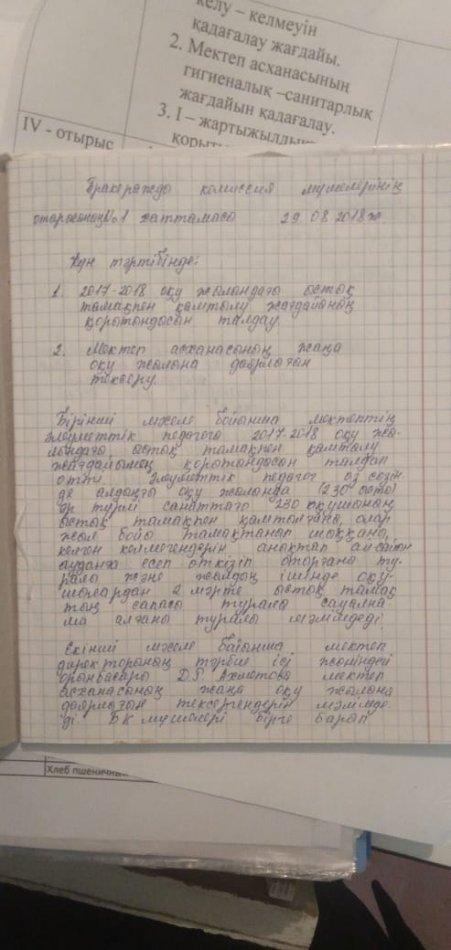 келу – келмеуін
қадағалау жағдайы.
2. Мектеп асханасының
гигиеналық –санитарлық
жағдайын қадағалау.
3. І – жартыжылдық
IV - отырыс
қорыты
Бракеражды комиссия мүшелерінің
отырысының №1 хаттамасы 29.08.2018ж.
Күн тәртібінде:
1. 2017-2018 оқу жылындағы ыстық
тамақпен қамтылу жағдайының
қорытындысын талдау.
2. Мектеп асханасының жаңа
оқу жылына даярлығын
тексеру.
Бірінші мәселе бойынша мектептің
әлеуметтік педагогы 2017-2018 оқу жы-
лындағы ыстық тамақпен қамтылу
жағдайының қорытындысын талдап
өтті. Әлеуметтік педагог өз сөзін
де алдыңғы оқу жылында (230 оқушы)
әр түрлі санаттағы 230 оқушының
ыстық тамақпен қамтылғаны, олар
жыл бойы тамақтанып шыққаны,
келген келмегендерін анықтап ай сайын
ауданға есеп өткізіп отырғаны ту-
ралы және жылдың ішінде оқу-
шылардан 2 мәрте ыстық тамақ
тың сапасы туралы сауална
ма алғаны туралы мәлімдеді.
Екінші мәселе бойынша мектеп
директорының тәрбие ісі жөніндегі
орынбасары Ахметова мектеп
асханасының жаңа оқу жылына
даярлығын тексергендерін мәлімде
ді. БК мүшелері бірге барып
Хлеб пшеничный